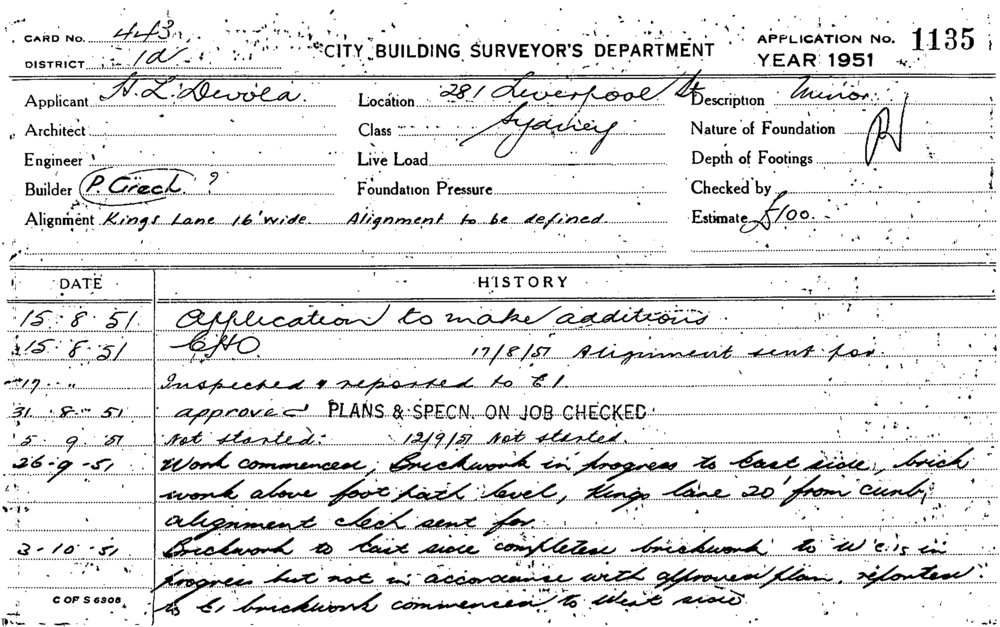 CARD No. 443
DISTRICT 1a
CITY BUILDING SURVEYOR'S DEPARTMENT
APPLICATION No. 1135
YEAR 1951
Applicant H. L. Devola
Location 281 Liverpool St
Sydney
Description Minor
Architect
Class
Nature of Foundation
Engineer
Live Load
Depth of Footings
Builder P. Grech ?
Foundation Pressure
Checked by
Alignment Kings Lane 16' wide. Alignment to be defined.
Estimate £100
DATE HISTORY
15 8 51 Application to make additions
15. 8 51 CHO. 17/8/51 Alignment sent for
17 " Inspected & reported to E1.
31 8 51 approved PLANS & SPECN. ON JOB CHECKED
5 9 51 Not started. 12/9/51 Not started.
26-9-51 Work commenced, Brickwork in progress to East side, brick
work above foot path level, Kings lane 20' from curb,
alignment check sent for
3-10-51 Brickwork to East side completed brickwork to W.C. is in
progress but not in accordance with approved plan, reported
to E1 brickwork commenced to West side
C OF S 6308